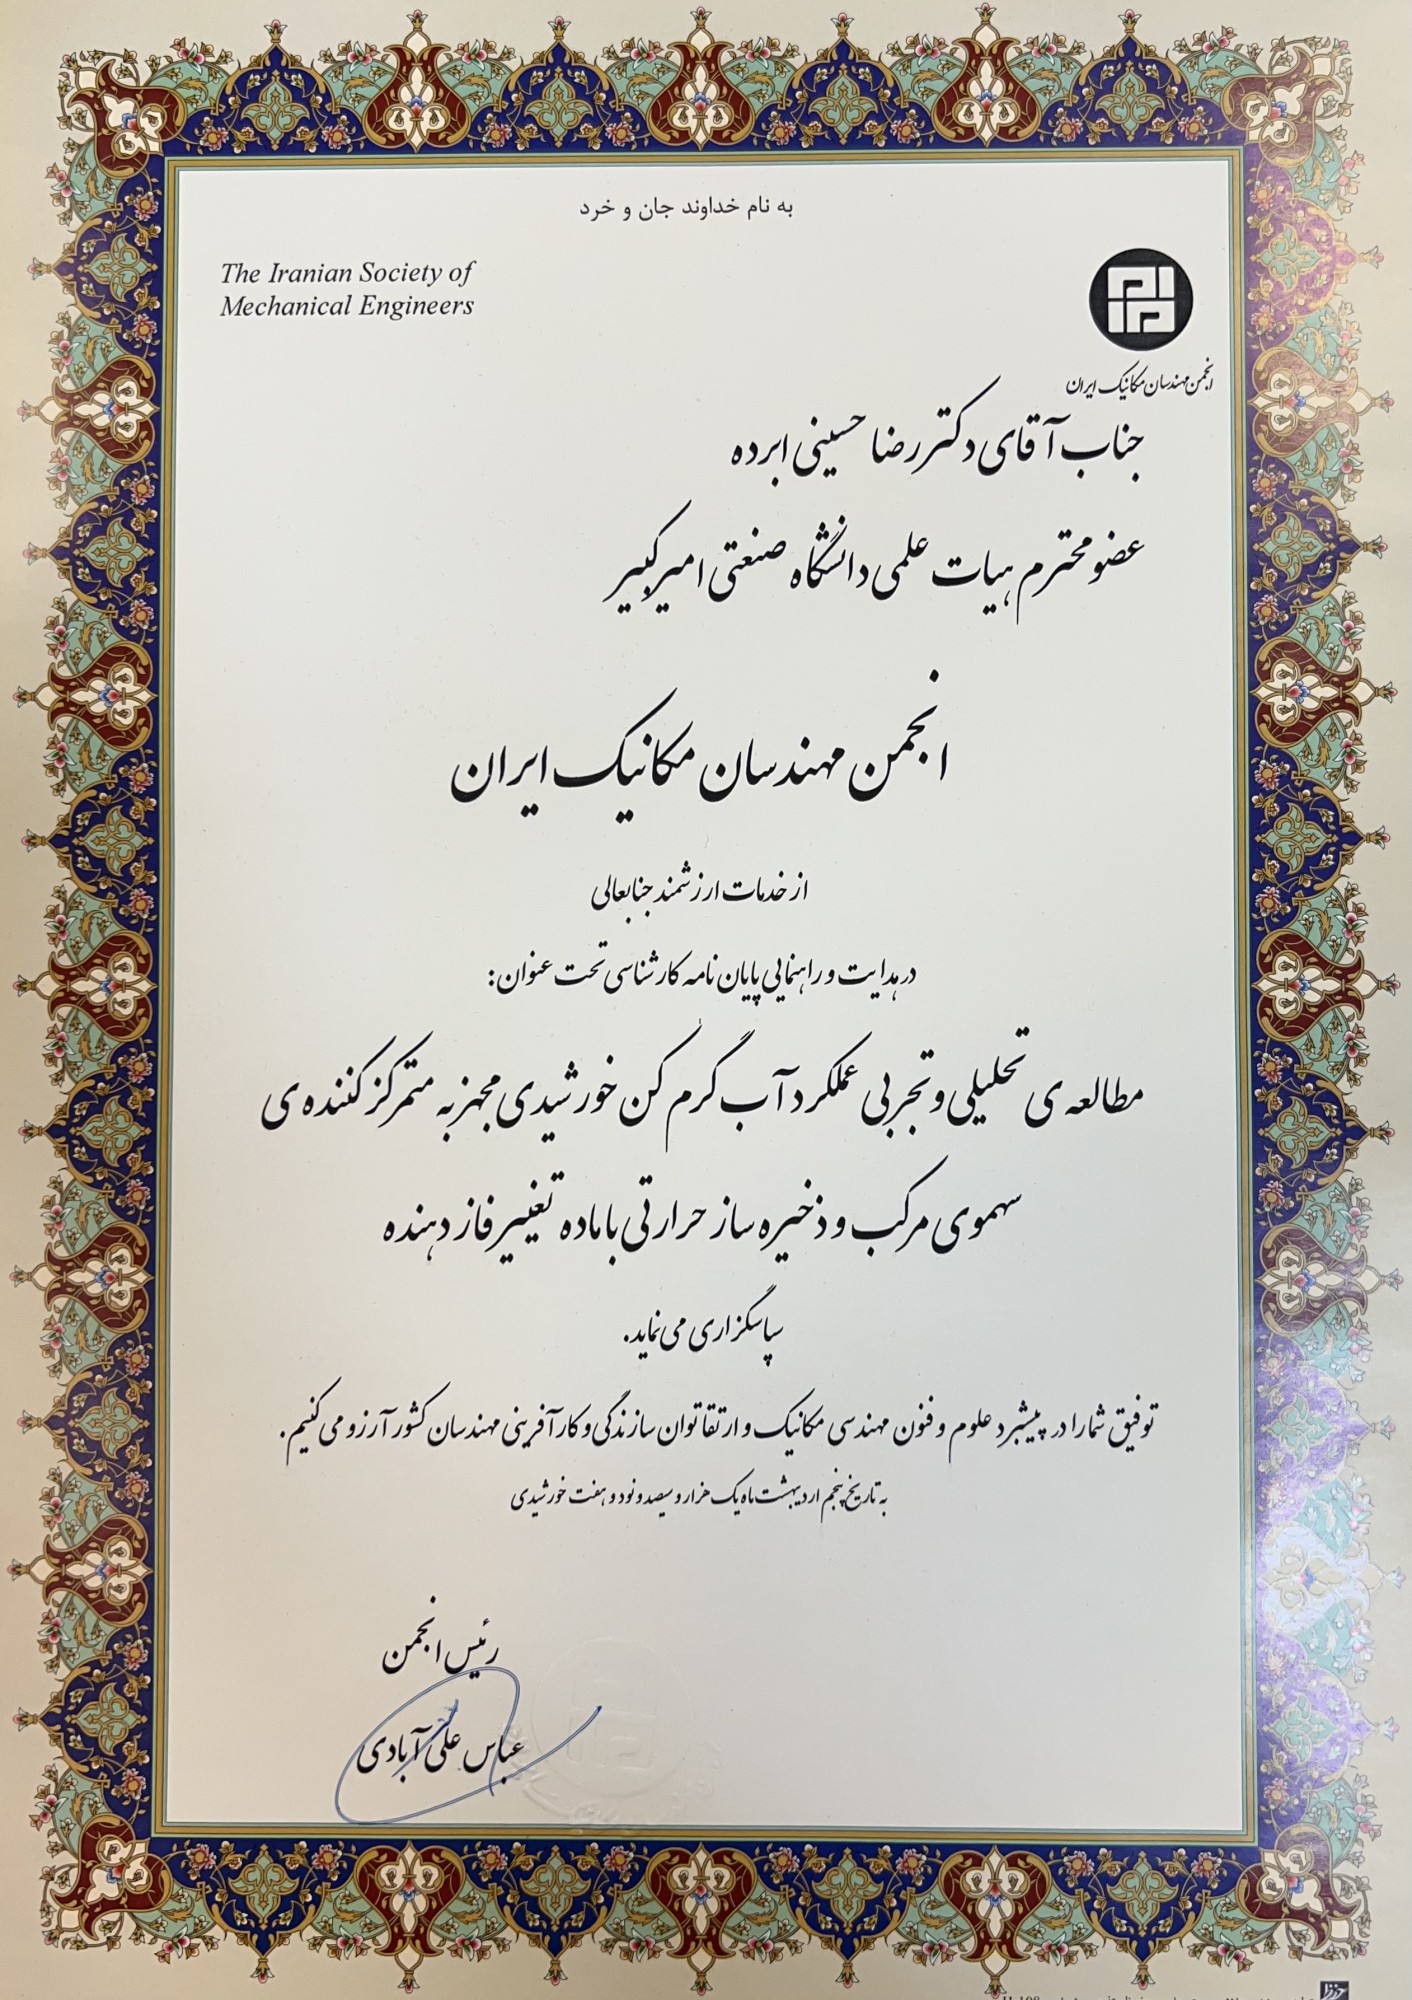 به نام خداوند جان و خرد
The Iranian Society of
Mechanical Engineers
انجمن مهندسان مکانیک ایران
جناب آقای دکتر رضا حسینی ابرده
عضو محترم هیات علمی دانشگاه صنعتی امیرکبیر
انجمن مهندسان مکانیک ایران
از خدمات ارزشمند جنابعالی
در هدایت و راهنمایی پایان نامه کارشناسی تحت عنوان:
مطالعه ی تحلیلی و تجربی عملکرد آب گرم کن خورشیدی مجهز به متمرکز کننده ی
سهموی مرکب و ذخیره ساز حرارتی با ماده تغییر فاز دهنده
سپاسگزاری می نماید.
توفیق شما را در پیشبرد علوم و فنون مهندسی مکانیک و ارتقا توان سازندگی و کارآفرینی مهندسان کشور آرزو می کنیم.
به تاریخ پنجم اردیبهشت ماه یک هزار و سیصد و نود و هفت خورشیدی
رئیس انجمن
عباس علی آبادی